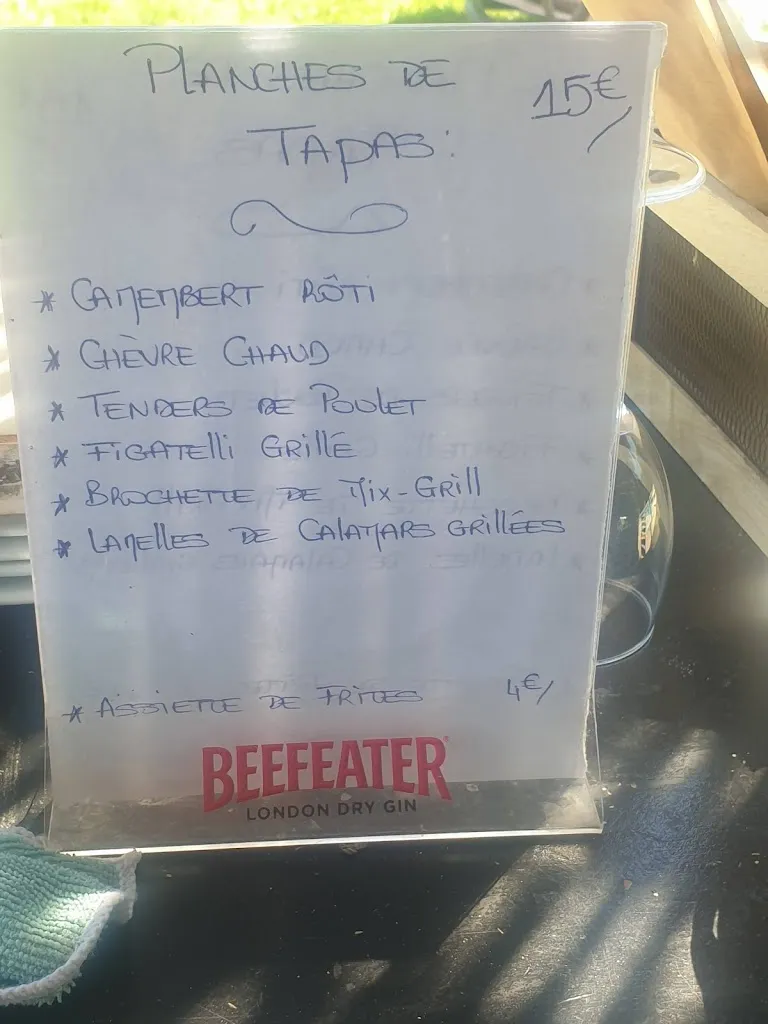 PLANCHES DE
15€
TAPAS:
* CAMEMBERT RÔTI
* CHÈVRE CHAUD
* TENDERS DE POULET
* FIGATELLI GRILLÉ
* BROCHETTE DE MIX-GRILL
* LAMELLES DE CALAMARS GRILLÉES
* ASSIETTE DE FRITES 4€/
BEEFEATER
LONDON DRY GIN